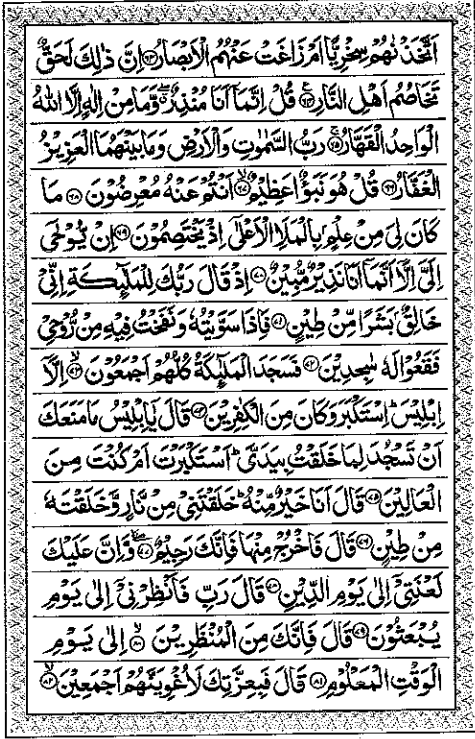 اَتَّخَذْنٰهُمْ سِخْرِیًّا اَمْ زَاغَتْ عَنْهُمُ الْاَبْصَارُ ﴿۶۳﴾ اِنَّ ذٰلِكَ لَحَقٌّ
تَخَاصُمُ اَهْلِ النَّارِ ﴿۶۴﴾ قُلْ اِنَّمَاۤ اَنَا مُنْذِرٌ وَّمَا مِنْ اِلٰهٍ اِلَّا اللّٰهُ
الْوَاحِدُ الْقَهَّارُ ﴿۶۵﴾ رَبُّ السَّمٰوٰتِ وَالْاَرْضِ وَمَا بَیْنَهُمَا الْعَزِیْزُ
الْغَفَّارُ ﴿۶۶﴾ قُلْ هُوَ نَبَؤٌا عَظِیْمٌ ﴿۶۷﴾ اَنْتُمْ عَنْهُ مُعْرِضُوْنَ ﴿۶۸﴾ مَا
كَانَ لِیَ مِنْ عِلْمٍۭ بِالْمَلَاِ الْاَعْلٰۤی اِذْ یَخْتَصِمُوْنَ ﴿۶۹﴾ اِنْ یُّوْحٰۤی
اِلَیَّ اِلَّاۤ اَنَّمَاۤ اَنَا نَذِیْرٌ مُّبِیْنٌ ﴿۷۰﴾ اِذْ قَالَ رَبُّكَ لِلْمَلٰٓىِٕكَةِ اِنِّیْ
خَالِقٌۢ بَشَرًا مِّنْ طِیْنٍ ﴿۷۱﴾ فَاِذَا سَوَّیْتُهٗ وَنَفَخْتُ فِیْهِ مِنْ رُّوْحِیْ
فَقَعُوْا لَهٗ سٰجِدِیْنَ ﴿۷۲﴾ فَسَجَدَ الْمَلٰٓىِٕكَةُ كُلُّهُمْ اَجْمَعُوْنَ ﴿۷۳﴾ اِلَّاۤ
اِبْلِیْسَ ؕ اِسْتَكْبَرَ وَكَانَ مِنَ الْكٰفِرِیْنَ ﴿۷۴﴾ قَالَ یٰۤاِبْلِیْسُ مَا مَنَعَكَ
اَنْ تَسْجُدَ لِمَا خَلَقْتُ بِیَدَیَّ ؕ اَسْتَكْبَرْتَ اَمْ كُنْتَ مِنَ
الْعَالِیْنَ ﴿۷۵﴾ قَالَ اَنَا خَیْرٌ مِّنْهُ ؕ خَلَقْتَنِیْ مِنْ نَّارٍ وَّخَلَقْتَهٗ
مِنْ طِیْنٍ ﴿۷۶﴾ قَالَ فَاخْرُجْ مِنْهَا فَاِنَّكَ رَجِیْمٌ ﴿۷۷﴾ وَّاِنَّ عَلَیْكَ
لَعْنَتِیْۤ اِلٰی یَوْمِ الدِّیْنِ ﴿۷۸﴾ قَالَ رَبِّ فَاَنْظِرْنِیْۤ اِلٰی یَوْمِ
یُبْعَثُوْنَ ﴿۷۹﴾ قَالَ فَاِنَّكَ مِنَ الْمُنْظَرِیْنَ ﴿۸۰﴾ اِلٰی یَوْمِ
الْوَقْتِ الْمَعْلُوْمِ ﴿۸۱﴾ قَالَ فَبِعِزَّتِكَ لَاُغْوِیَنَّهُمْ اَجْمَعِیْنَ ﴿۸۲﴾